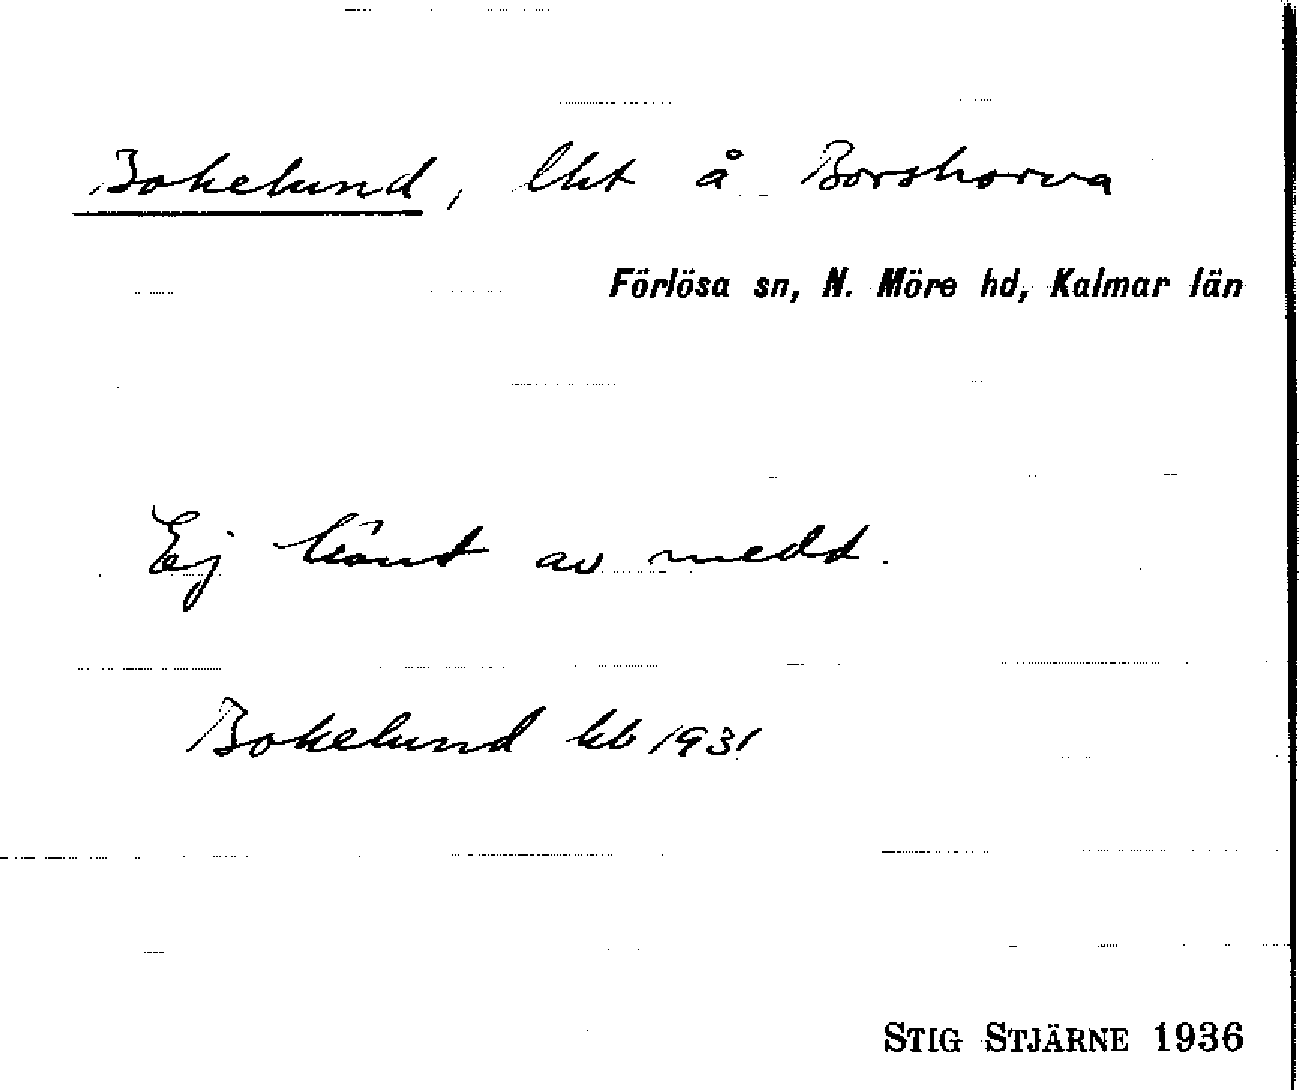 Bokelund, lht å Borshorva
Förlösa sn, N. Möre hd, Kalmar län
Ej känt av medd.
Bokelund kb 1931
STIG STJÄRNE 1936